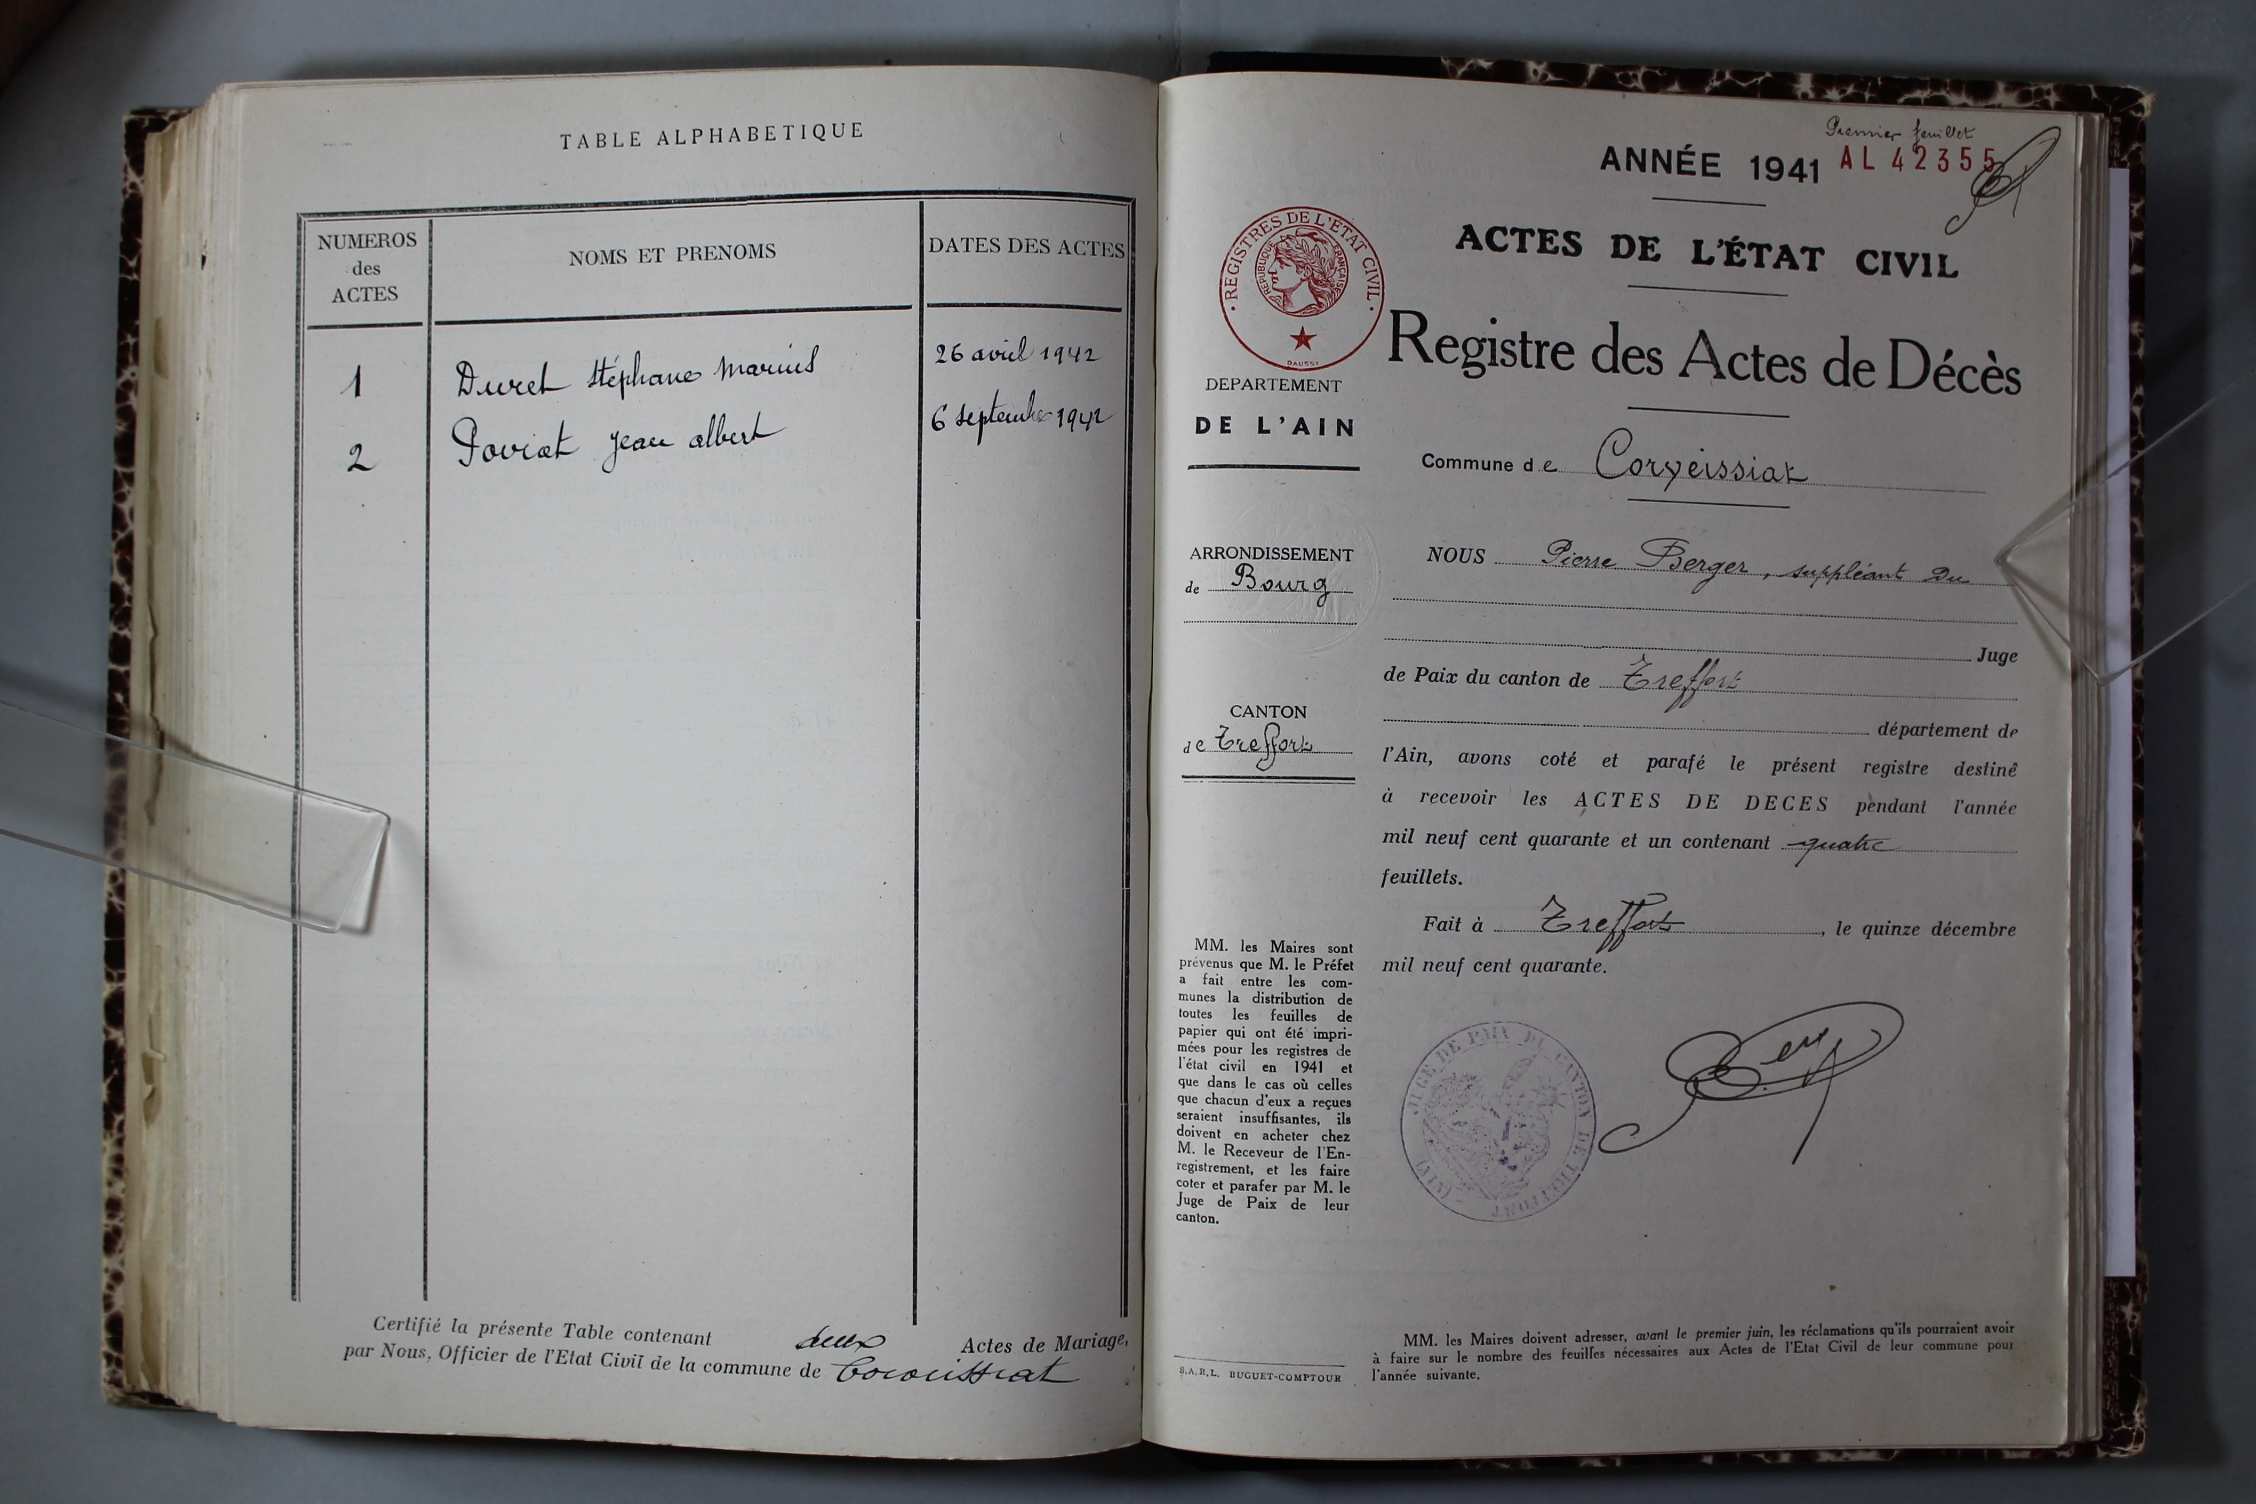 TABLE ALPHABETIQUE
NUMEROS
des
ACTES
NOMS ET PRENOMS
DATES DES ACTES
1 Duret Stéphane Marius 26 avril 1942
2 Poviat Jean albert 6 septembre 1942
Certifié la présente Table contenant deux Actes de Mariage,
par Nous, Officier de l'Etat Civil de la commune de Corveissiat
Premier feuillet
ANNÉE 1941 AL 42355
ACTES DE L'ÉTAT CIVIL
Registre des Actes de Décès
Commune de Corveissiat
REGISTRES DE L'ÉTAT CIVIL
REPUBLIQUE FRANÇAISE
DAUSSY
DEPARTEMENT
DE L'AIN
ARRONDISSEMENT
de Bourg
CANTON
de Treffort
MM. les Maires sont
prévenus que M. le Préfet
a fait entre les com-
munes la distribution de
toutes les feuilles de
papier qui ont été impri-
mées pour les registres de
l'état civil en 1941 et
que dans le cas où celles
que chacun d'eux a reçues
seraient insuffisantes, ils
doivent en acheter chez
M. le Receveur de l'En-
registrement, et les faire
coter et parafer par M. le
Juge de Paix de leur
canton.
S.A.R.L. BUGUET-COMPTOUR
NOUS Pierre Berger, suppléant du
Juge
de Paix du canton de Treffort
département de
l'Ain, avons coté et parafé le présent registre destiné
à recevoir les ACTES DE DECES pendant l'année
mil neuf cent quarante et un contenant quatre
feuillets.
Fait à Treffort, le quinze décembre
mil neuf cent quarante.
JUGE DE PAIX DU CANTON DE TREFFORT (AIN)
MM. les Maires doivent adresser, avant le premier juin, les réclamations qu'ils pourraient avoir
à faire sur le nombre des feuilles nécessaires aux Actes de l'Etat Civil de leur commune pour
l'année suivante.